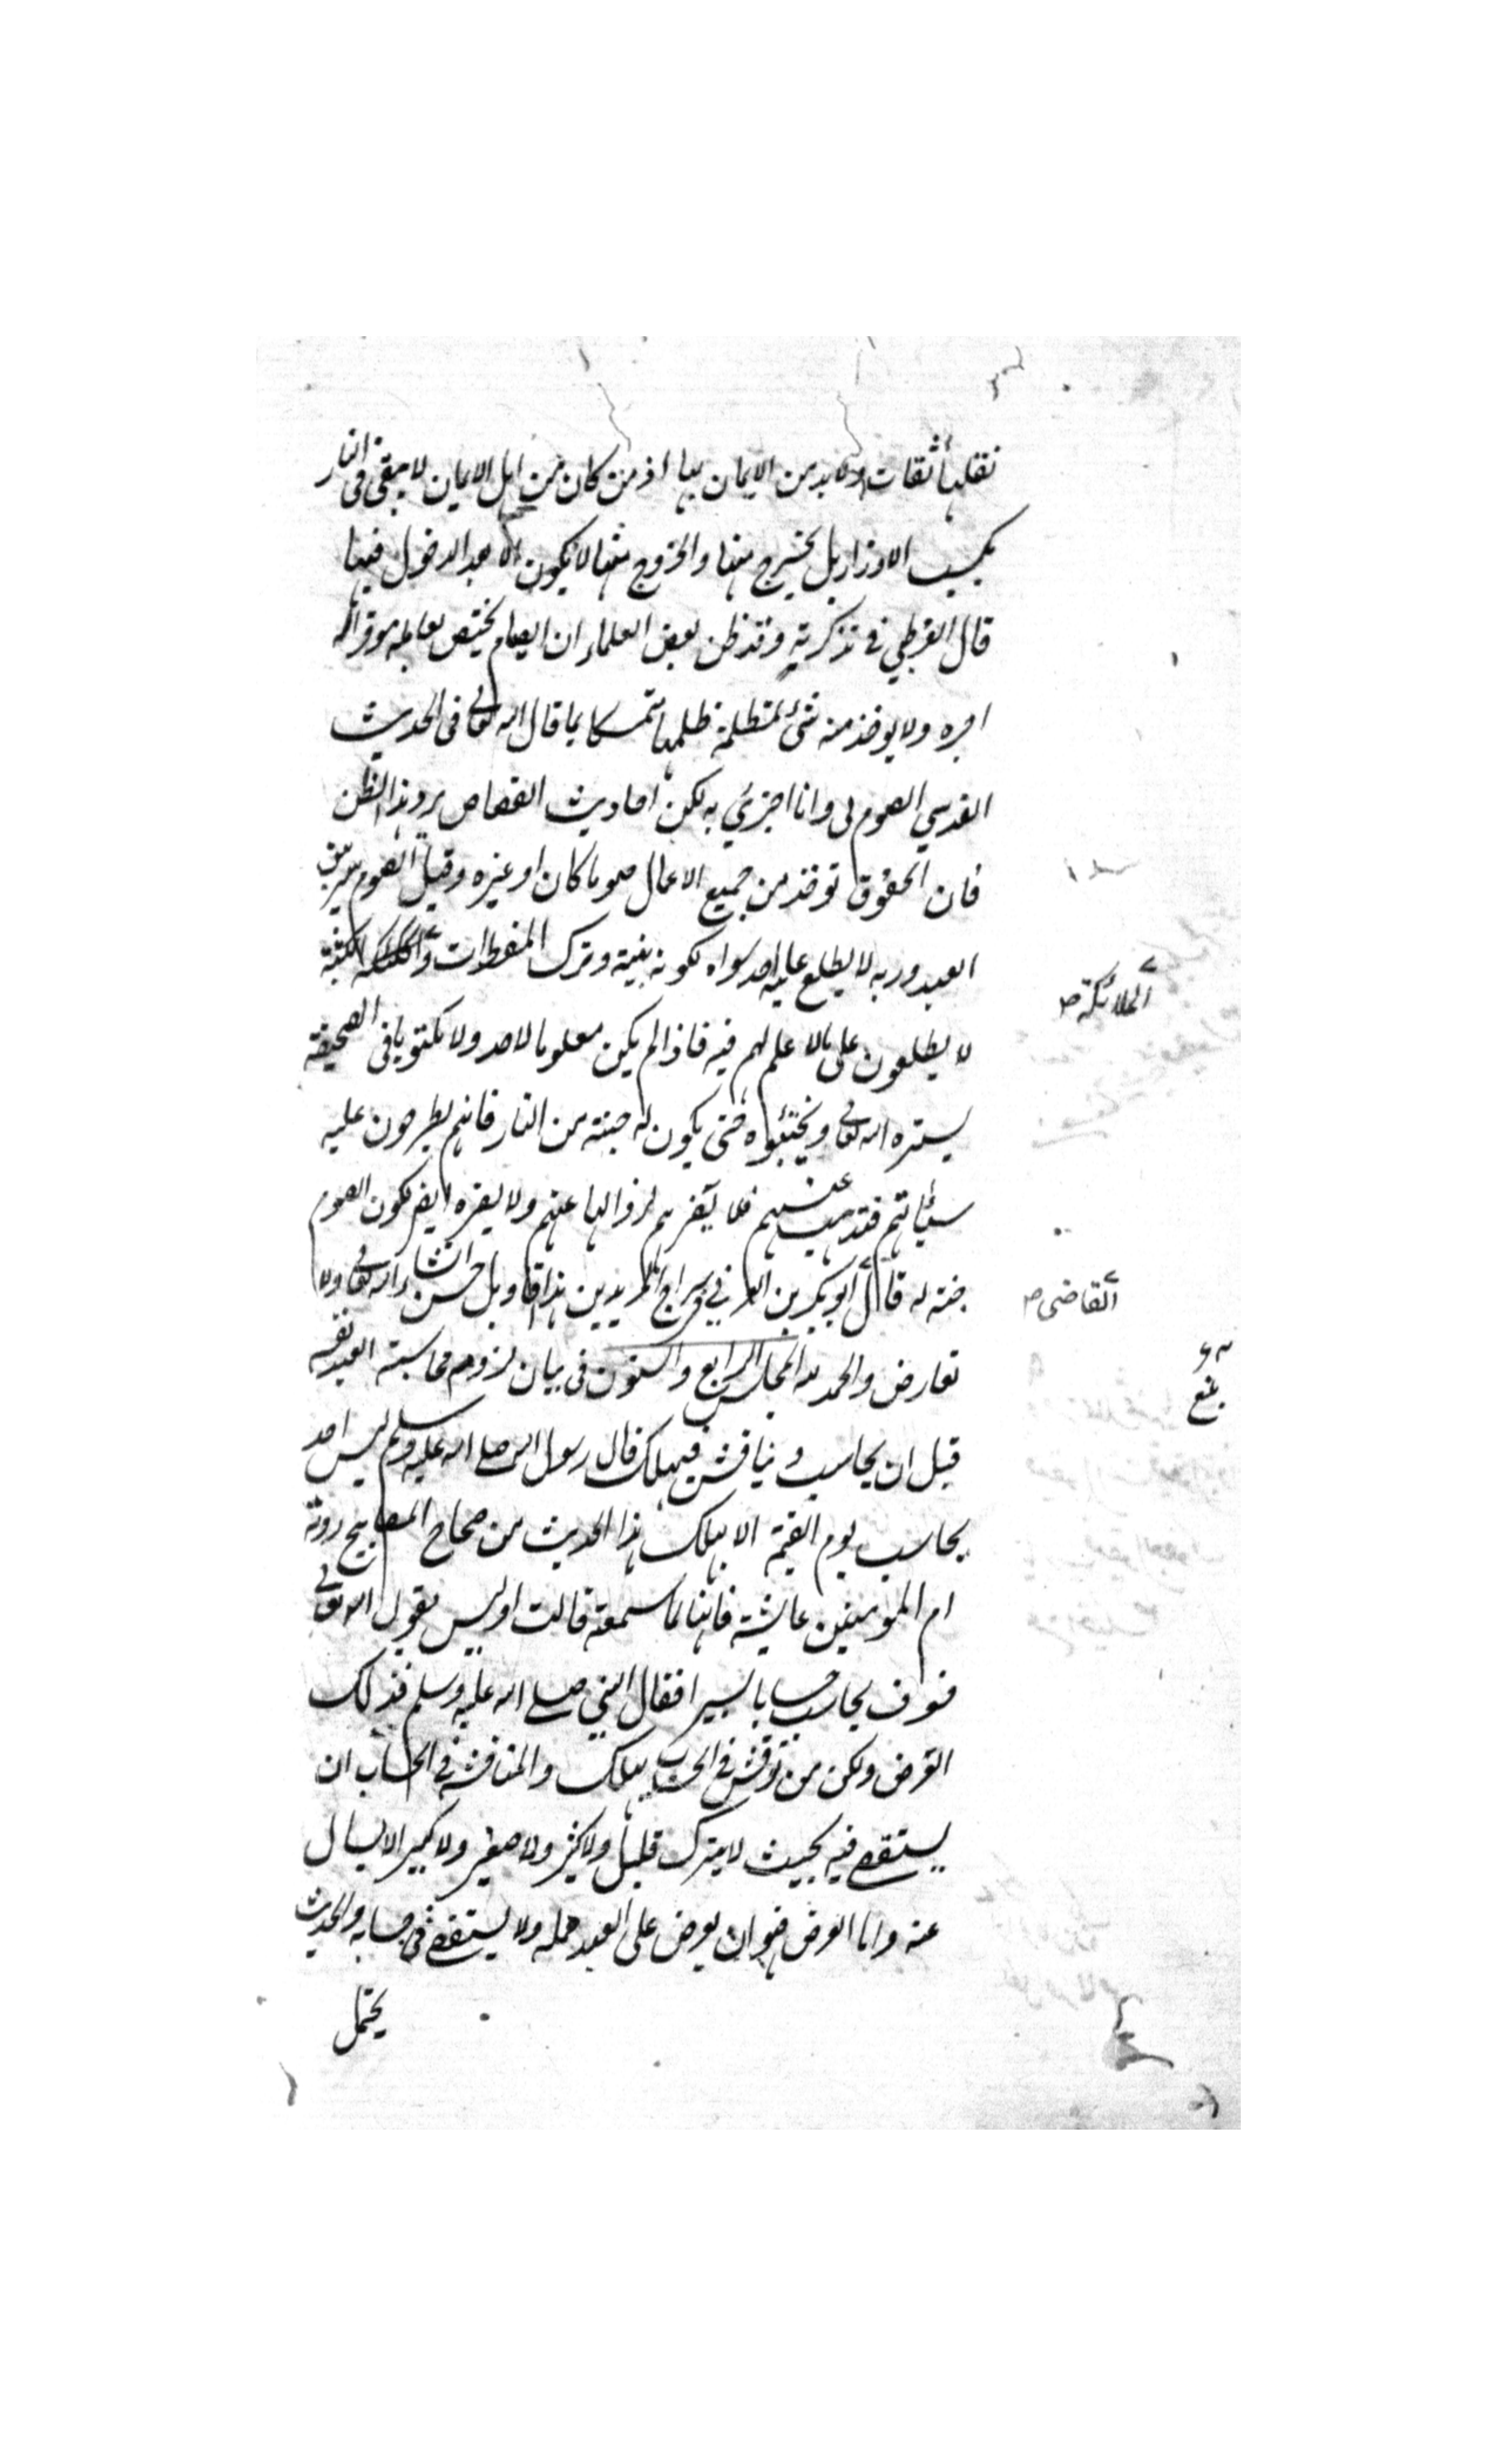 نقلها ثقات ولابد من الايمان بها اذ من كان من اهل الايمان لا يبقى فى النار
بكسب الاوزار بل يخرج منها والخروج منها لا يكون الا بعد الدخول فيها
قال القرطبي في تذكرته وقد ظن بعض العلماء ان الصيام يختص بعامله موفرا له
اجره ولا يوخذ منه شئ لمظلمة ظلمها متمسكا بما قال الله تعالى فى الحديث
القدسي الصوم لى وانا اجزي به لكن احاديث القصاص يرد هذا الظن
فان الحقوق توخذ من جميع الاعمال صوما كان او غيره وقيل الصوم سر بين
العبد وربه لا يطلع عليه احد سواه لكونه بنية وترك المفطرات و الكتبة
الملائكة صح
لا يطلعون على ما لا علم لهم فيه فاذا لم يكن معلوما لاحد ولا مكتوبا فى الصحيفة
يستره الله تعالى ويخبئوه حتى يكون له جنة من النار فانهم يطرحون عليه
سيأتهم فتذهب عنهم فلا يضرهم لزوالها عنهم ولا يضره ايضر لكون الصوم
جنة له قال ابو بكر بن العربي في سراج المريدين هذا تاويل حسن ان شاء الله تعالى ولا
القاضى صح
تعارض والحمد لله المجلس الرابع والستون فى بيان لزوم محاسبة العبد نفسه
قبل ان يحاسب ويناقش فيهلك قال رسول الله صلى الله عليه وسلم ليس احد
يحاسب يوم القيمة الا يهلك هذا الحديث من صحاح المصابيح روته
ام المومنين عايشة فانها لما سمعته قالت اوليس يقول الله تعالى
فسوف يحاسب حسابا يسيرا فقال النبي صلى الله عليه وسلم فذلك
العرض ولكن من نوقش في الحساب يهلك والمناقشة فى الحساب ان
يستقصى فيه بحيث لا يترك قليل ولا كثير ولا صغير ولا كبير الا يسال
عنه واما العرض فهو ان يعرض على العبد عمله ولا يستقصى فى حسابه والحديث
يحتمل